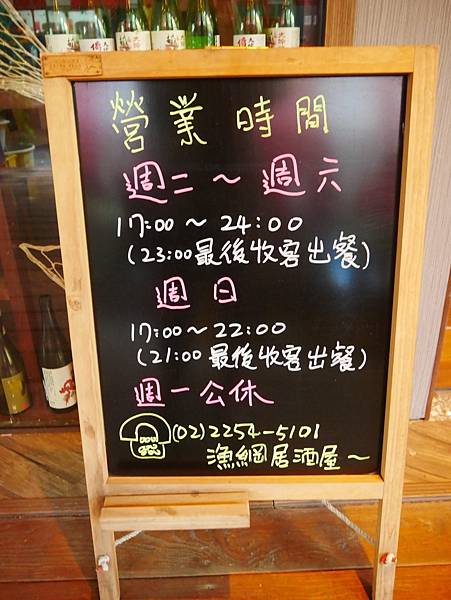 營業時間
週二～週六
17:00～24:00
(23:00最後收客出餐)
週日
17:00～22:00
(21:00最後收客出餐)
週一公休
(02)2254-5101
漁網居酒屋～